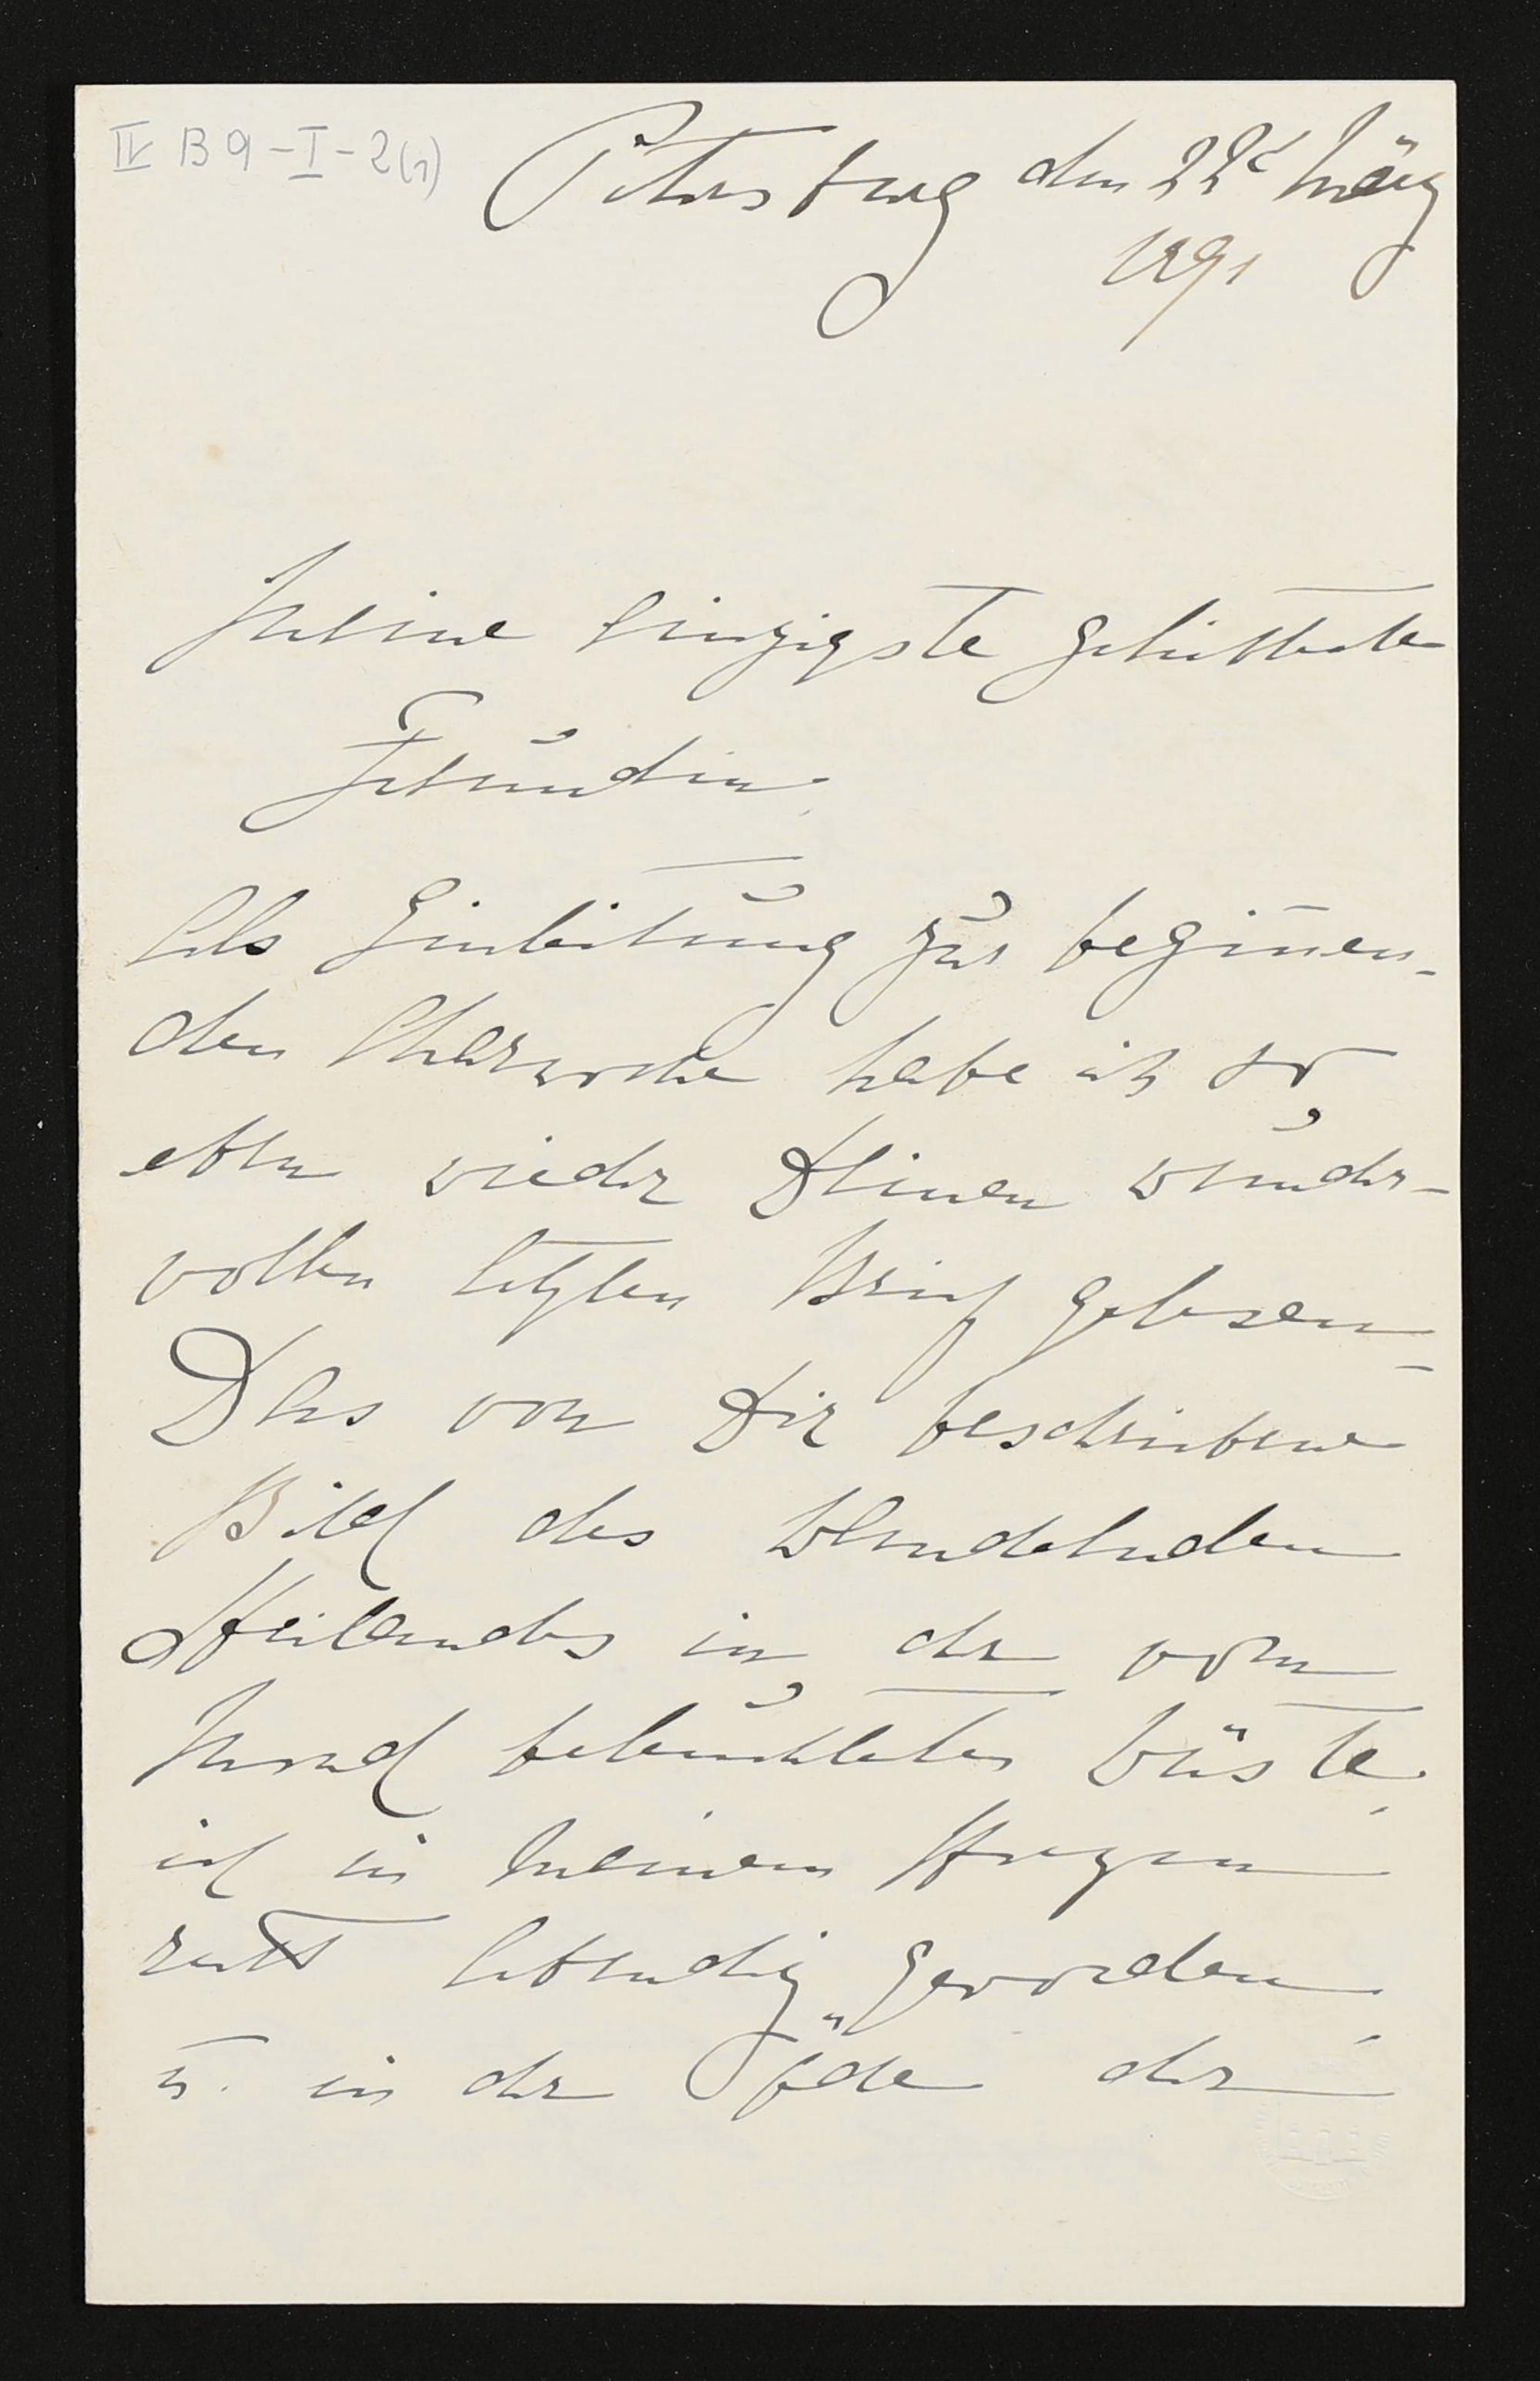 IV B 9-I-2(1)
Petersburg den 22t März
1891
Meine einzigste geliebteste
Freundin.
Als Einleitung zur beginnen-
den Charwoche habe ich so
eben wieder Deinen wunder-
vollen letzten Brief gelesen
Das von Dir beschriebene
Bild des Wandelnden
Heilandes in der vom
Mond beleuchteten Wüste,
ist in meinem Herzen
recht lebendig geworden,
u. in der Öde der